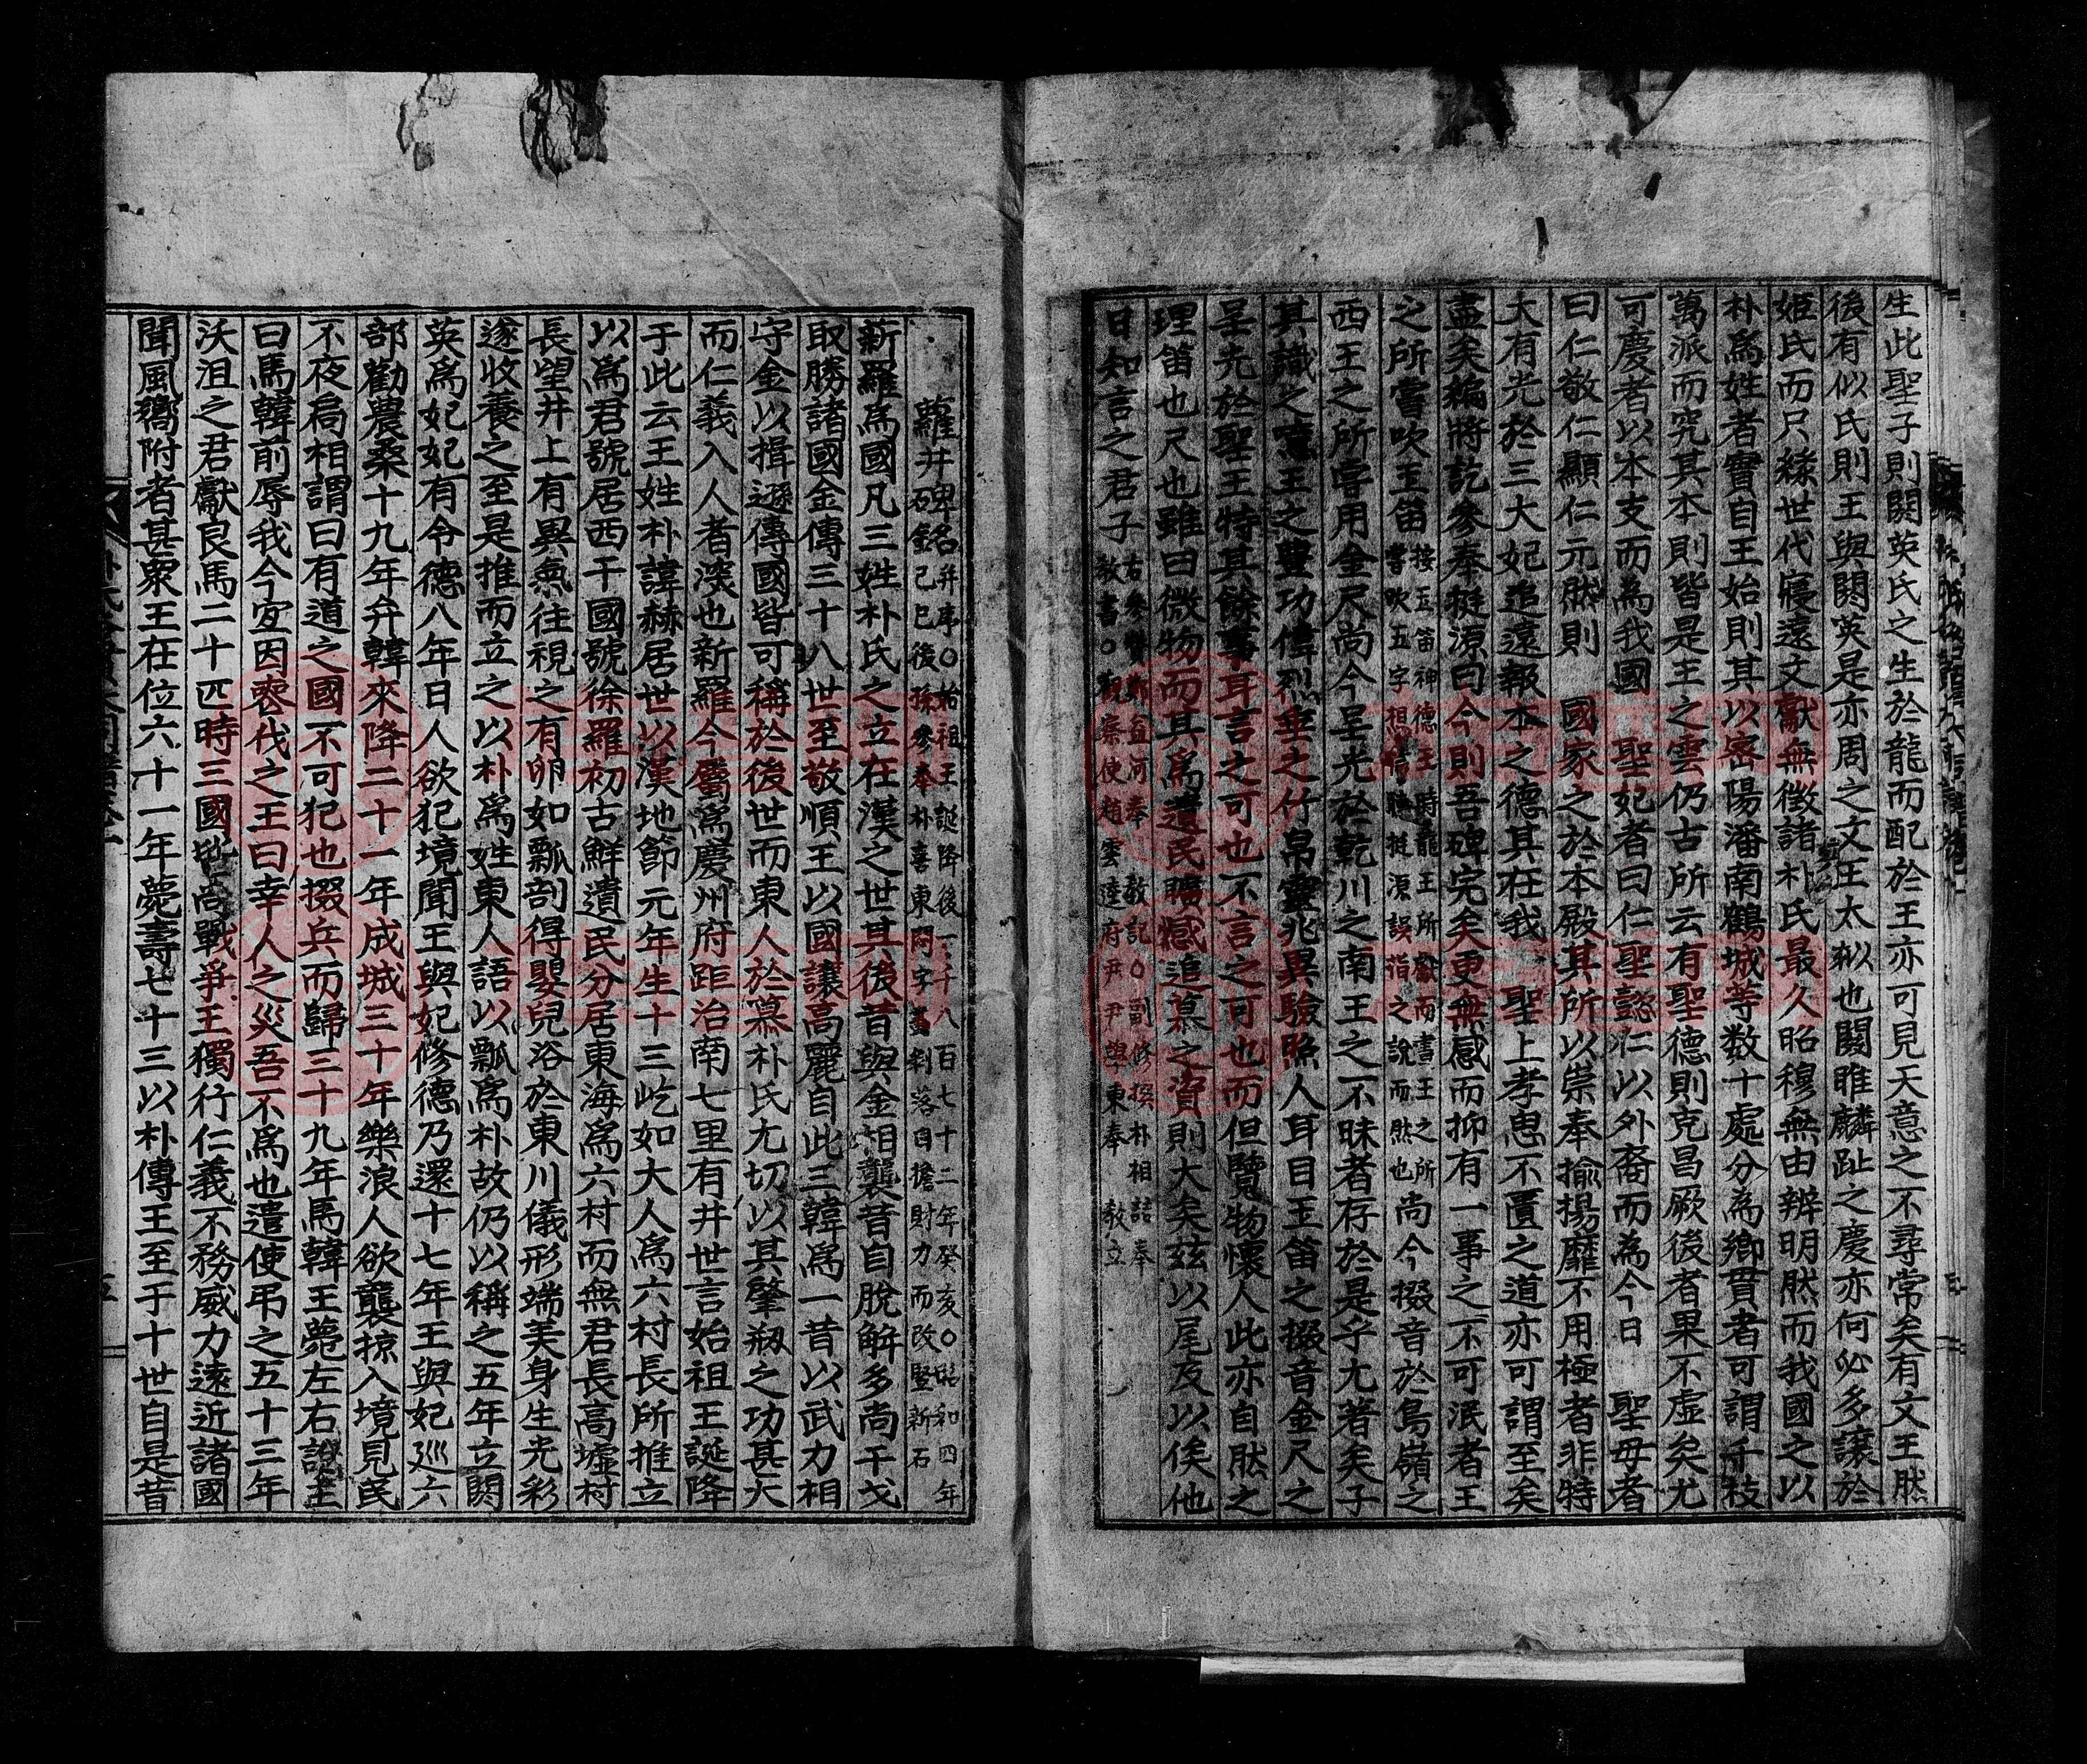 生此聖子則閼英氏之生於龍而配於王亦可見天意之不尋常矣有文王然
後有似氏則王與閼英是亦周之文王太姒也關雎麟趾之慶亦何必多讓於
姬氏而只緣世代寢遠文獻無徵諸朴氏最久昭穆無由辨明然而我國之以
朴爲姓者實自王始則其以密陽潘南鶴城等数十處分爲鄉貫者可謂千枝
萬派而究其本則皆是王之雲仍古所云有聖德則克昌厥後者果不虛矣尤
可慶者以本支而為我國　聖妃者曰仁聖懿仁以外裔而為今日　聖母者
曰仁敬仁顯仁元然則　國家之於本殿其所以崇奉揄揚靡不用極者非特
大有光於三大妃追遠報本之德其在我　聖上孝思不匱之道亦可謂至矣
盡矣編將訖參奉挺源曰今則吾碑完矣更無感而抑有一事之不可泯者王
之所嘗吹玉笛按玉笛神德王時龍王所獻而晝王之所嘗吹五字相聽挺源誤指之說而然也尚今掇音於鳥嶺之
西王之所嘗用金尺尚今呈光於乾川之南王之不昧者存於是乎尤著矣子
其識之噫王之豊功偉烈垂之竹帛靈兆異驗照人耳目玉笛之掇音金尺之
呈光於聖王特其餘事耳言之可也不言之可也而但覽物懷人此亦自然之
理笛也尺也雖曰微物而其爲遺民曠感追慕之資則大矣玆以尾及以俟他
日知言之君子
蘿井碑銘并序○始祖王誕降後一千八百七十二年癸亥○昭和四年己巳後孫參奉朴喜東閔字畫剝落自擔財力而改竪新石
新羅爲國凡三姓朴氏之立在漢之世其後昔與金相襲昔自脫解多尚干戈
取勝諸國金傳三十八世至敬順王以國讓高麗自此三韓爲一昔以武力相
守金以揖遜傳國皆可稱於後世而東人於慕朴氏尤切以其肇刱之功甚大
而仁義入人者深也新羅今屬爲慶州府距治南七里有井世言始祖王誕降
于此云王姓朴諱赫居世以漢地節元年生十三屹如大人爲六村長所推立
以爲君號居西干國號徐羅初古鮮遺民分居東海爲六村而無君長高墟村
長望井上有異氣往視之有卵如瓢剖得嬰兒浴於東川儀形端美身生光彩
遂收養之至是推而立之以朴爲姓東人語以瓢爲朴故仍以稱之五年立閼
英爲妃妃有令德八年日人欲犯境聞王與妃修德乃還十七年王與妃巡六
部勸農桑十九年弁韓來降二十一年成城三十年樂浪人欲襲掠入境見民
不夜扃相謂曰有道之國不可犯也掇兵而歸三十九年馬韓王薨左右說王
曰馬韓前辱我今宜因喪伐之王曰幸人之災吾不爲也遣使弔之五十三年
沃沮之君獻良馬二十匹時三國皆尚戰爭王獨行仁義不務威力遠近諸國
聞風嚮附者甚衆王在位六十一年薨壽七十三以朴傳王至于十世自是昔